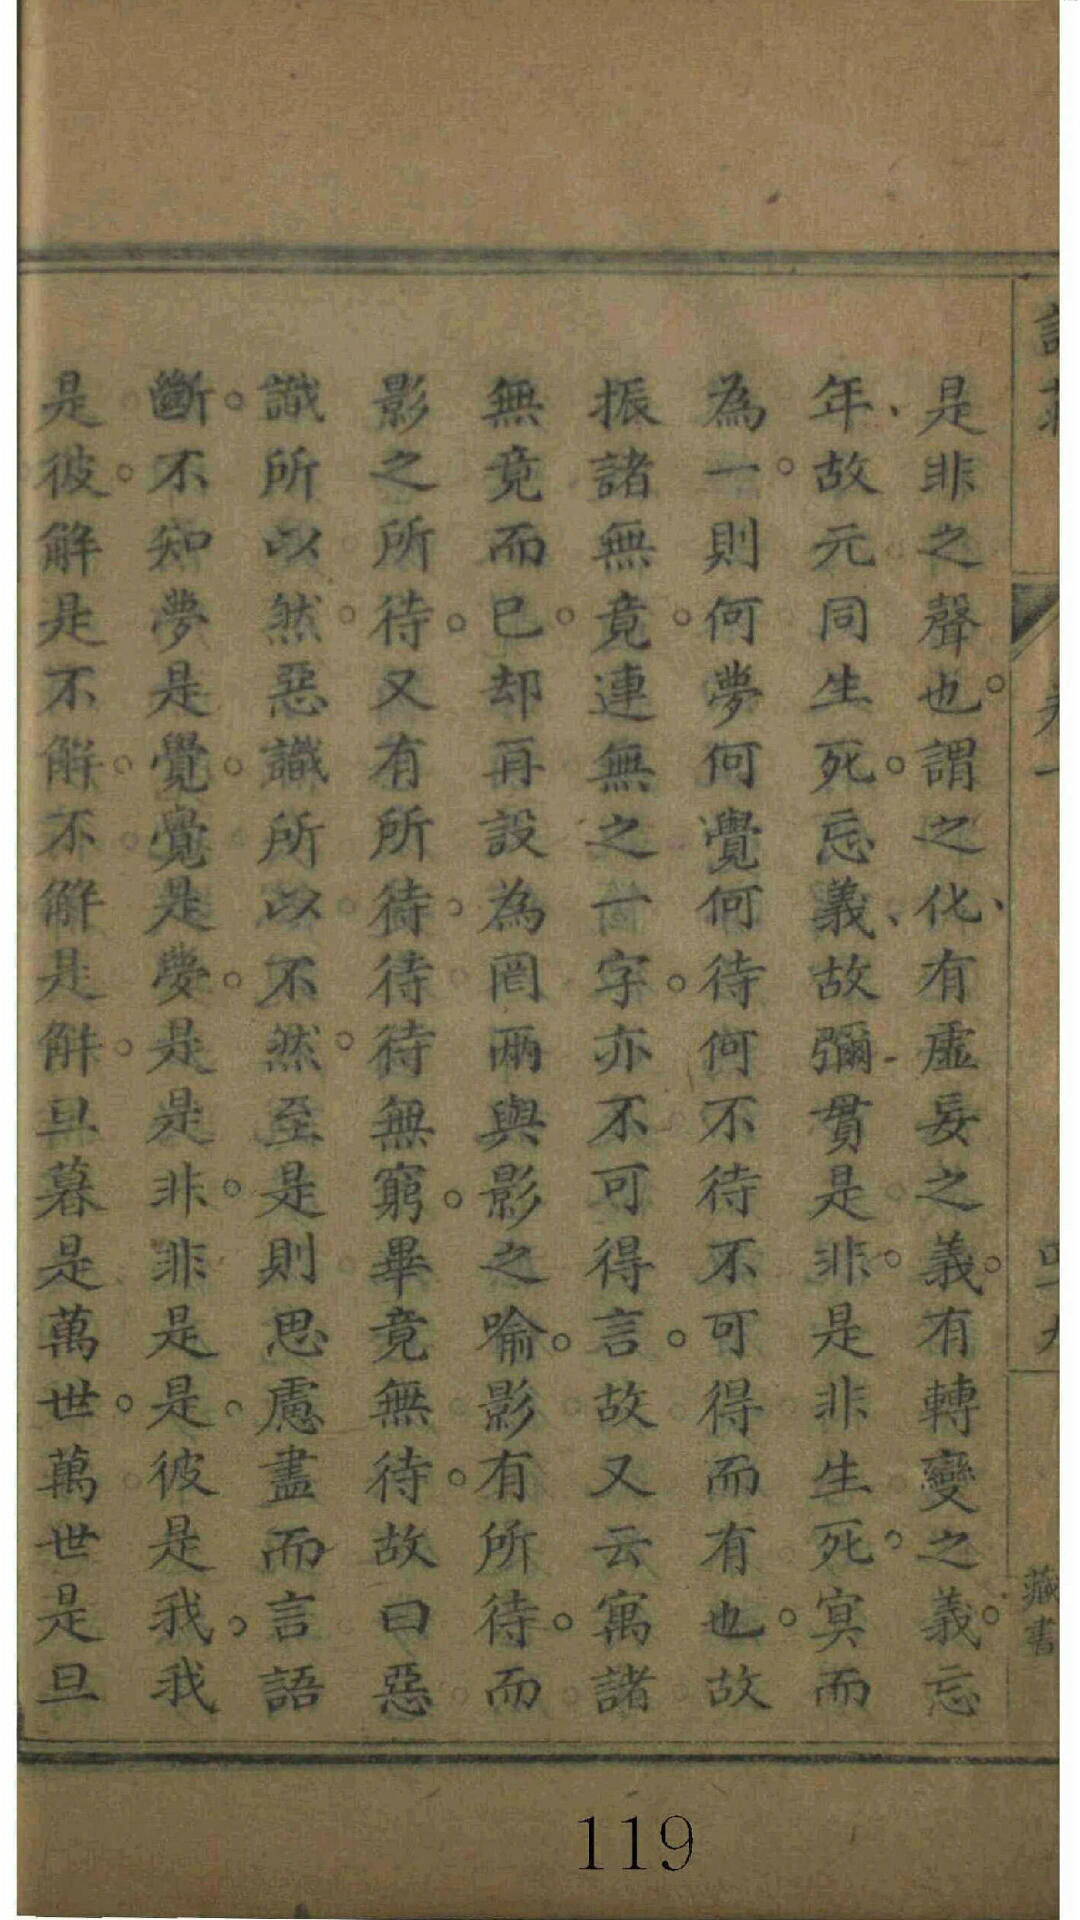 是非之聲也。謂之化、有虛妄之義。有轉變之義。忘
年、故元同生死。忘義、故彌貫是非。是非生死。冥而
為一。則何夢何覺何待何不待不可得而有也。故
振諸無竟。連無之一字。亦不可得言。故又云寓諸
無竟而已。却再設為罔兩與影之喻。影有所待。而
影之所待。又有所待。待待無窮。畢竟無待。故曰惡
識所以然。惡識所以不然。至是則思慮盡而言語
斷。不知夢是覺。覺是夢。是是非。非是是。彼是我。我
是彼。解是不解。不解是解。旦暮是萬世。萬世是旦
卷一
藏書
119